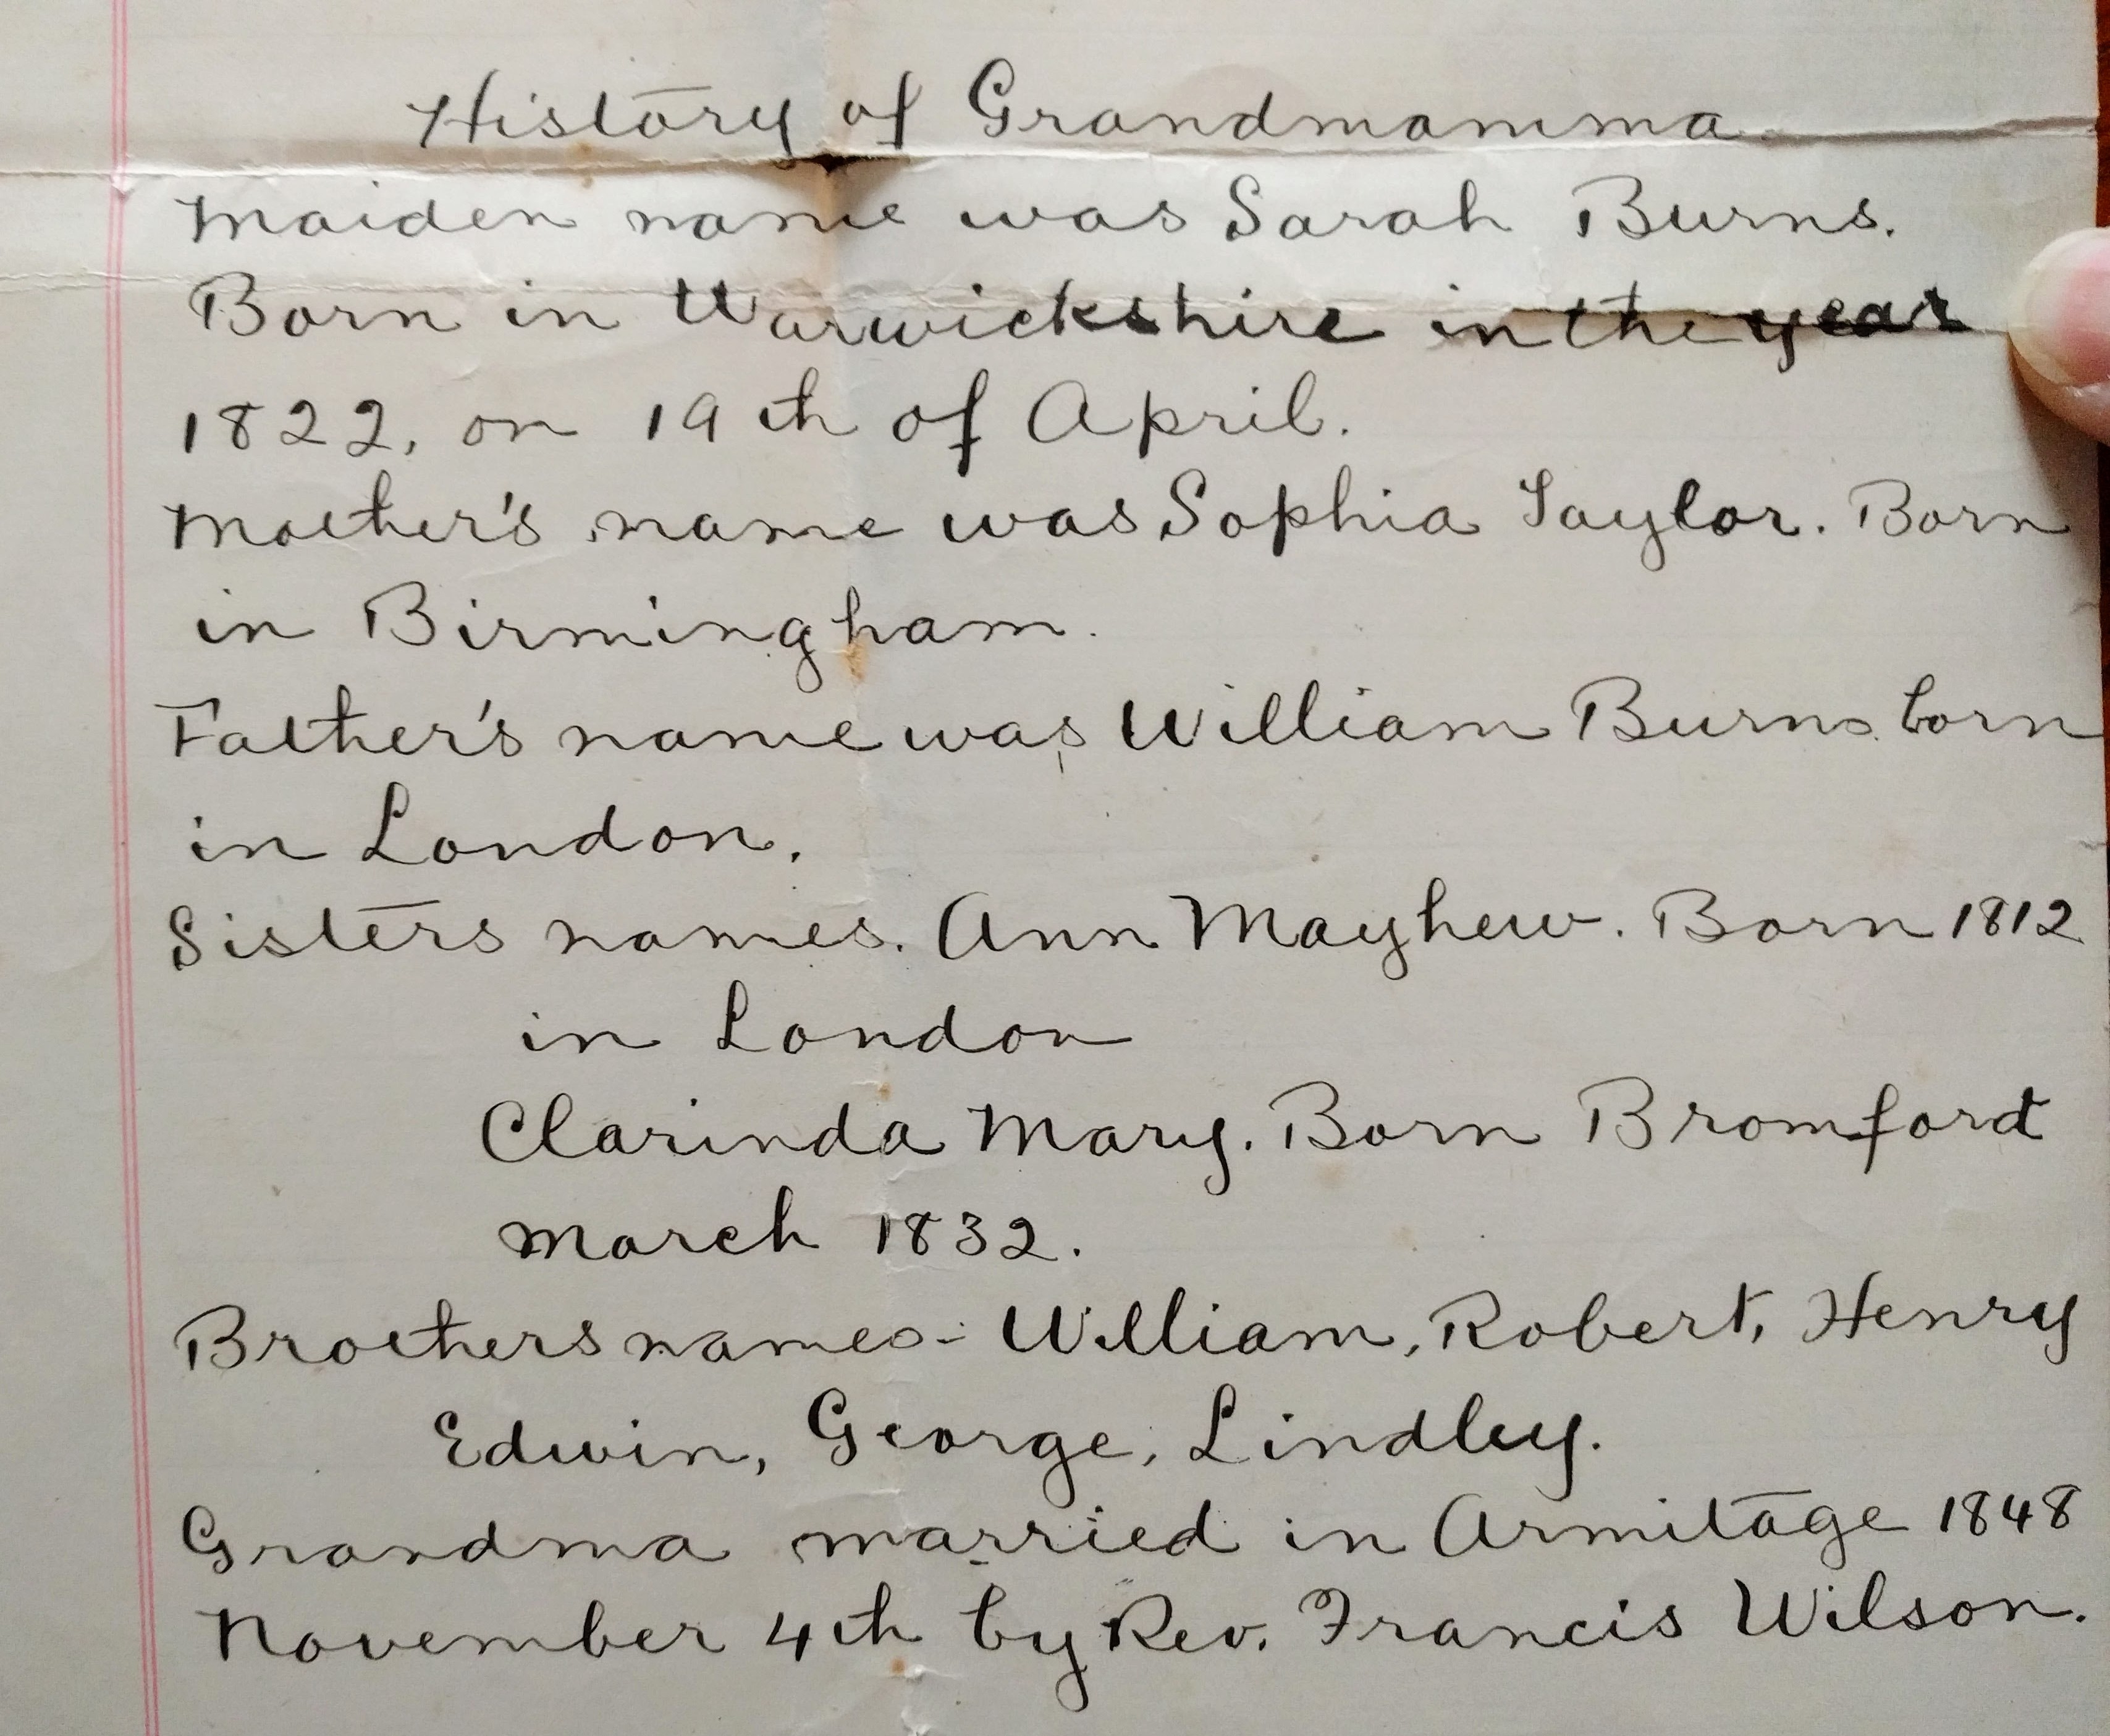 History of Grandmamma
Maiden name was Sarah Burns.
Born in Warwickshire in the year
1822, on 19th of April.
Mother's name was Sophia Taylor. Born
in Birmingham.
Father's name was William Burns born
in London.
Sisters names. Ann Mayhew. Born 1812
in London
Clarinda Mary. Born Bromford
March 1832.
Brothers names - William, Robert, Henry
Edwin, George, Lindley.
Grandma married in Armitage 1848
November 4th by Rev. Francis Wilson.